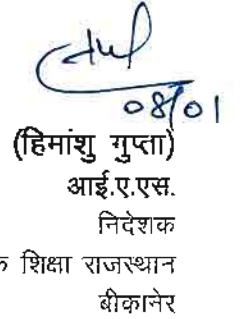 08/01
(हिमांशु गुप्ता)
आई.ए.एस.
निदेशक
क शिक्षा राजस्थान
बीकानेर